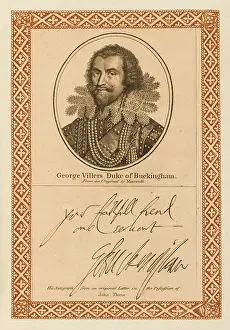 George Villers Duke of Buckingham.
From an Original by Miereveldt.
your faithfull frend
and servant
GBuckingham
His Autograph from an original Letter in the Possession of
John Thane